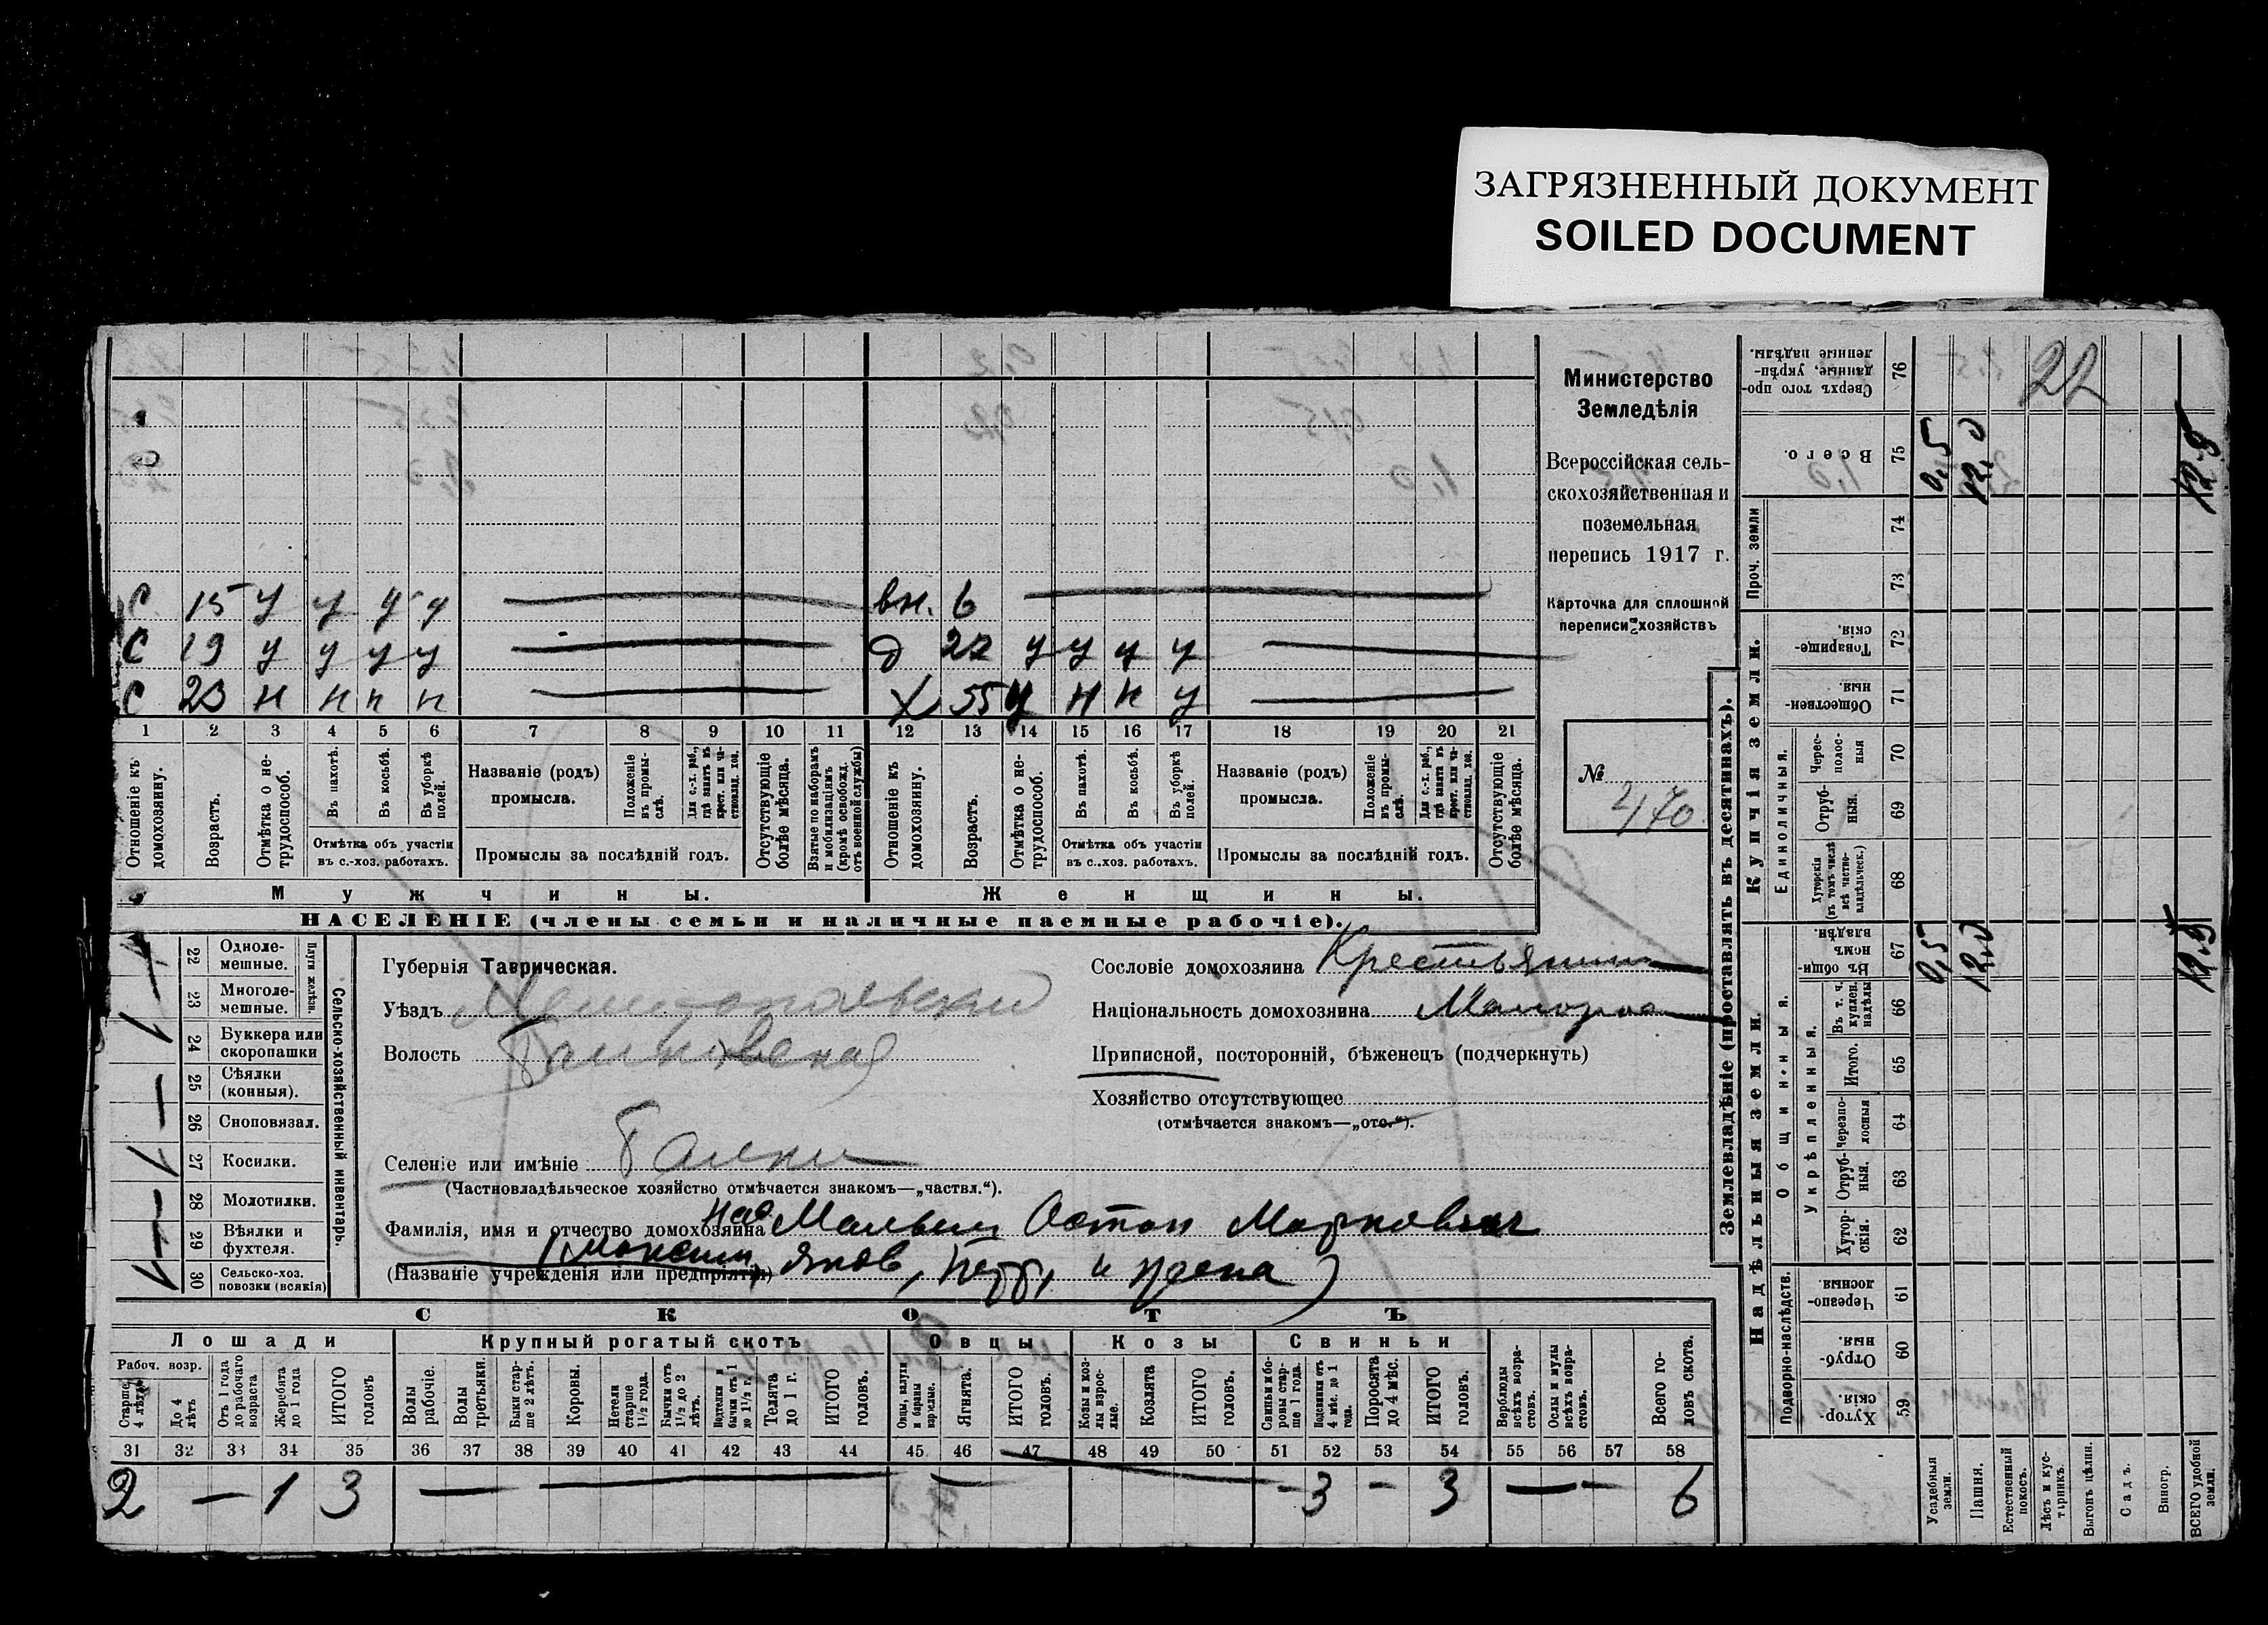 ЗАГРЯЗНЕННЫЙ ДОКУМЕНТ
SOILED DOCUMENT
Министерство
Земледѣлія
Всероссійская сель-
скохозяйственная и
поземельная
перепись 1917 г.
Карточка для сплошной
переписи хозяйствъ
№
470
С 15 у у у у вн. 6
С 19 у у у у д 22 у у у у
С 23 н н н н Х 55 у н н у
1 2 3 4 5 6 7 8 9 10 11 12 13 14 15 16 17 18 19 20 21
Отношеніе къ домохозяину.
Возрастъ.
Отмѣтка о не-трудоспособ.
Въ пахотѣ.
Въ косьбѣ.
Въ уборкѣ полей.
Отмѣтка объ участіи
въ с.-хоз. работахъ.
Названіе (родъ)
промысла.
Положеніе въ промы-слѣ.
Для с.-х. раб., гдѣ занятъ въ крест. или ча-стновлад. хоз.
Промыслы за послѣдній годъ.
Отсутствующіе болѣе мѣсяца.
Взятые по наборамъ и мобилизаціямъ (кромѣ освобожд. отъ военной службы)
Отношеніе къ домохозяину.
Возрастъ.
Отмѣтка о не-трудоспособ.
Въ пахотѣ.
Въ косьбѣ.
Въ уборкѣ полей.
Отмѣтка объ участіи
въ с..хоз. работахъ.
Названіе (родъ)
промысла.
Положеніе въ промы-слѣ.
Для с.-х. раб., гдѣ занята въ крест. или ча-стновлад. хоз.
Промыслы за послѣдній годъ.
Отсутствующіе болѣе мѣсяца.
Мужчины.
Женщины.
НАСЕЛЕНІЕ (члены семьи и наличные наемные рабочіе).
22 Одноле-мешные.
23 Многоле-мешные.
Плуги желѣзн.
24 Буккера или скоропашки
25 Сѣялки (конныя).
26 Сноповязал.
27 Косилки.
28 Молотилки.
29 Вѣялки и фухтеля.
30 Сельско-хоз. повозки (всякія)
Сельско-хозяйственный инвентарь.
Губернія Таврическая.
Уѣздъ Мелитопольский
Волость
Селеніе или имѣніе Балки
(Частновладѣльческое хозяйство отмѣчается знакомъ—„частвл.“).
Сословіе домохозяина Крестьянин
Національность домохозяина Малоросс
Приписной, посторонній, бѣженецъ (подчеркнуть)
Хозяйство отсутствующее
(отмѣчается знакомъ—„отс.“).
Фамилія, имя и отчество домохозяина Остап Маркович
(Названіе учрежденія или предпріятія)
Максим, Яков,
СКОТЪ
Лошади
Крупный рогатый скотъ
Овцы
Козы
Свиньи
Рабоч. возр.
Старше 4 лѣтъ
До 4 лѣтъ
Отъ 1 года до рабочаго возраста
Жеребята до 1 года
ИТОГО головъ
Волы рабочіе.
Волы третьяки.
Быки стар-ше 2 лѣтъ.
Коровы.
Нетели старше 1½ года.
Бычки отъ 1½ до 2 лѣтъ.
Подтелки и бычки отъ 1 до 1½ г.
Телята до 1 г.
ИТОГО головъ.
Овцы, валухи и бараны взрослые.
Ягнята.
ИТОГО головъ.
Козы и коз-лы взрос-лые.
Козлята
ИТОГО головъ.
Свиньи и бо-ровы стар-ше 1 года.
Подсвинки отъ 4 мѣс. до 1 года.
Поросята до 4 мѣс.
ИТОГО головъ.
Верблюды всѣхъ возра-стовъ.
Ослы и мулы всѣхъ возра-стовъ.
Всего го-ловъ скота.
31 32 33 34 35 36 37 38 39 40 41 42 43 44 45 46 47 48 49 50 51 52 53 54 55 56 57 58
2 — 1 3 — — — - 3 - 3 — - 6
Землевладѣніе (проставлять въ десятинахъ).
Сверхъ того про-данные, укрѣп-ленные надѣлы.
76
22
Всего.
75
0,5 12,0 12,5
Проч. земли
74
73
Купчія земли.
Товарище-скія.
72
Обществен-ныя
71
Единоличныя.
Черес-полос-ныя
70
Отруб-ныя.
69
Хуторскія (въ томъ числѣ всѣ частно-владѣльческ.)
68
Надѣльныя земли.
Общинныя.
Въ общи-номъ владѣн.
67
0,5 12,0 12,5
Укрѣпленныя.
Въ т. ч. куплен. надѣлы
66
Итого.
65
Черезпо-лосныя
64
Отруб-ныя.
63
Хутор-скія.
62
Подворно-наслѣдств.
Черезпо-лосныя.
61
Отруб-ныя.
60
Хутор-скія.
59
Усадебныя земли.
Пашня.
Естественный покосъ.
Лѣсъ и кус-тарникъ.
Выгонъ цѣлин.
Садъ.
Виногр.
ВСЕГО удобной земли.